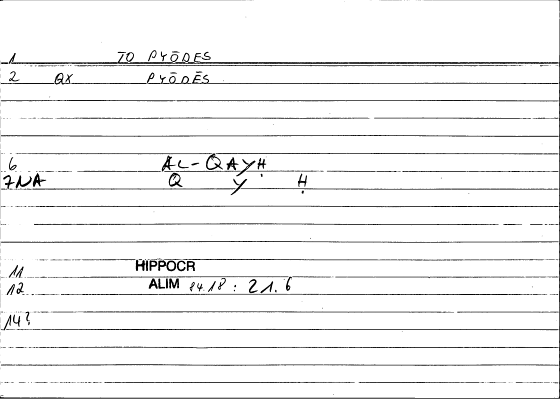 1 TO PYŌDES
2 QX PYŌDĒS
6 AL-QAYḤ
7NA Q Y Ḥ
11 HIPPOCR
12 ALIM 2418 : 21.6
14?